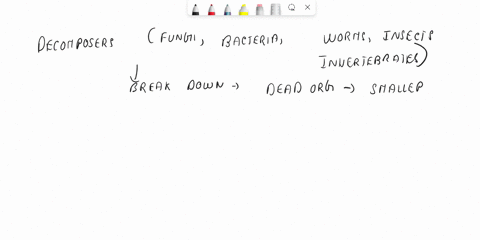 DECOMPOSERS (FUNGI, BACTERIA, WORMS, INSECTS
INVERTEBRATES)
BREAK DOWN → DEAD ORG → SMALLER